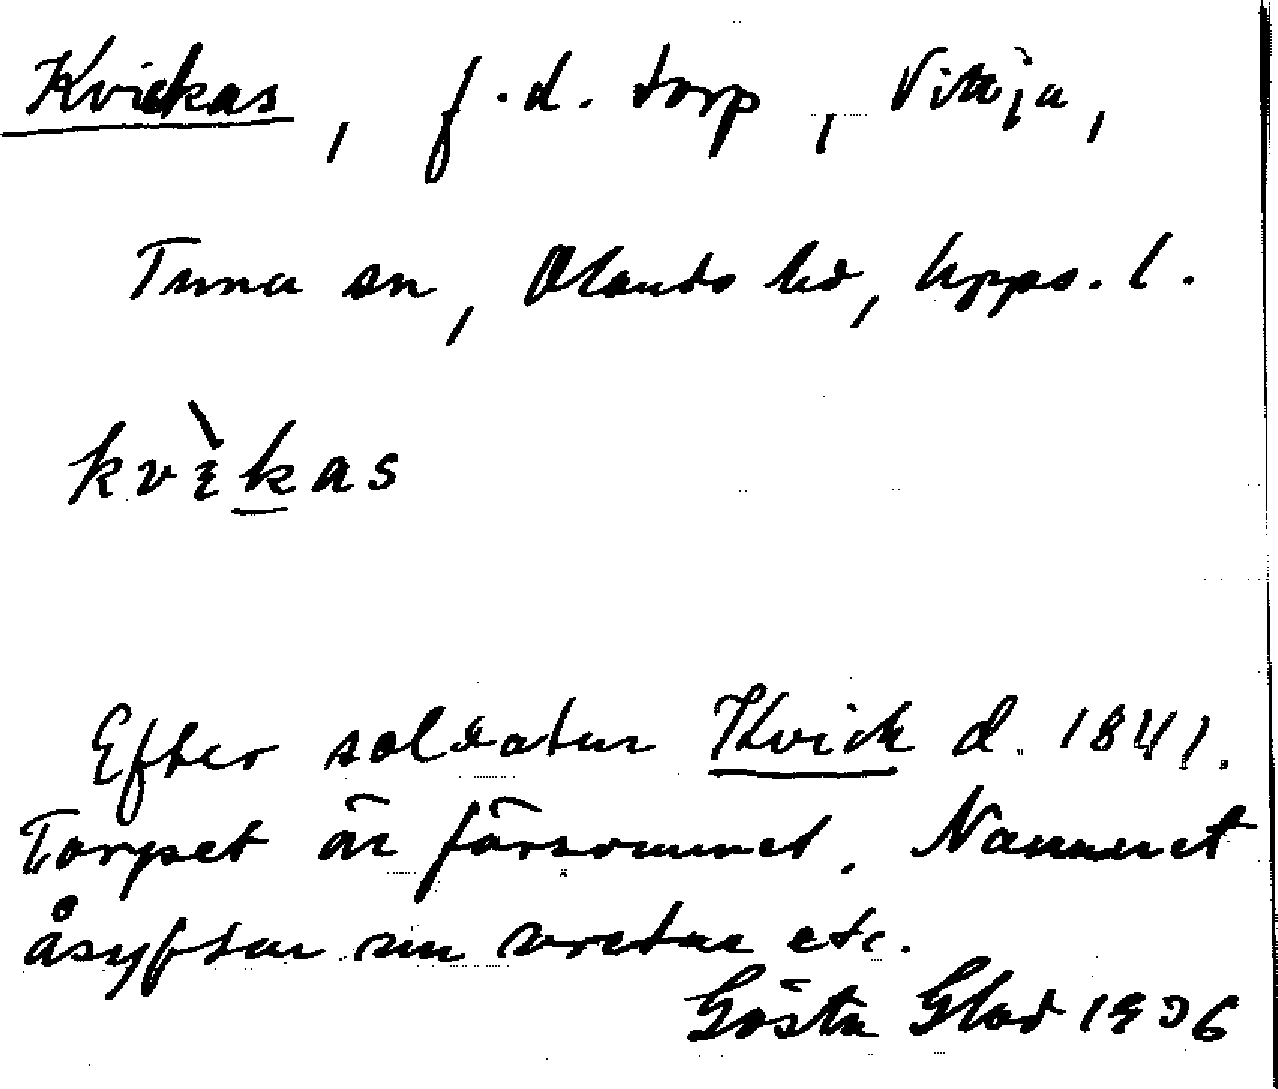 Kvickas, f.d. torp, Vittja,
Tuna sn, Olands hd, Upps. l.
kvìkas
Efter soldaten Kvick d. 1841.
Torpet är försvunnet. Namnet
åsyftar nu vretar etc.
Gösta Glad 1936